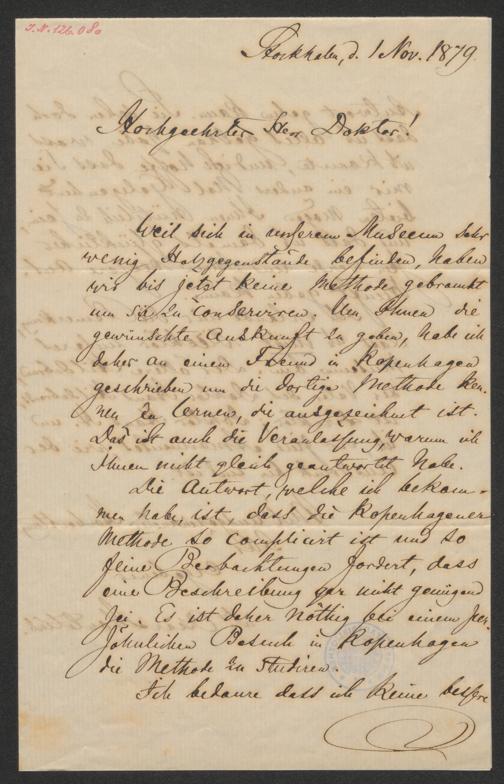 J.N. 126.080
Stockholm, d. 1 Nov. 1879.
Hochgeehrter Herr Doktor!
Weil sich in unserem Museum sehr
wenig Holzgegenstände befinden, haben
wir bis jetzt keine Methode gebraucht
um sie zu conserviren. Um Ihnen die
gewünschte Auskunft zu geben, habe ich
daher an einen Freund in Kopenhagen
geschrieben um die dortige Methode ken-
nen zu lernen, die ausgezeichnet ist.
Das ist auch die Veranlassung, warum ich
Ihnen nicht gleich geantwortet habe.
Die Antwort, welche ich bekom-
men habe, ist dass die Kopenhagener
Methode so complicirt ist und so
feine Beobachtungen fordert, dass
eine Beschreibung gar nicht genügend
sei. Es ist daher nöthig bei einem per-
söhnlichen Besuch in Kopenhagen
die Methode zu studiren.
Ich bedaure dass ich keine bessere